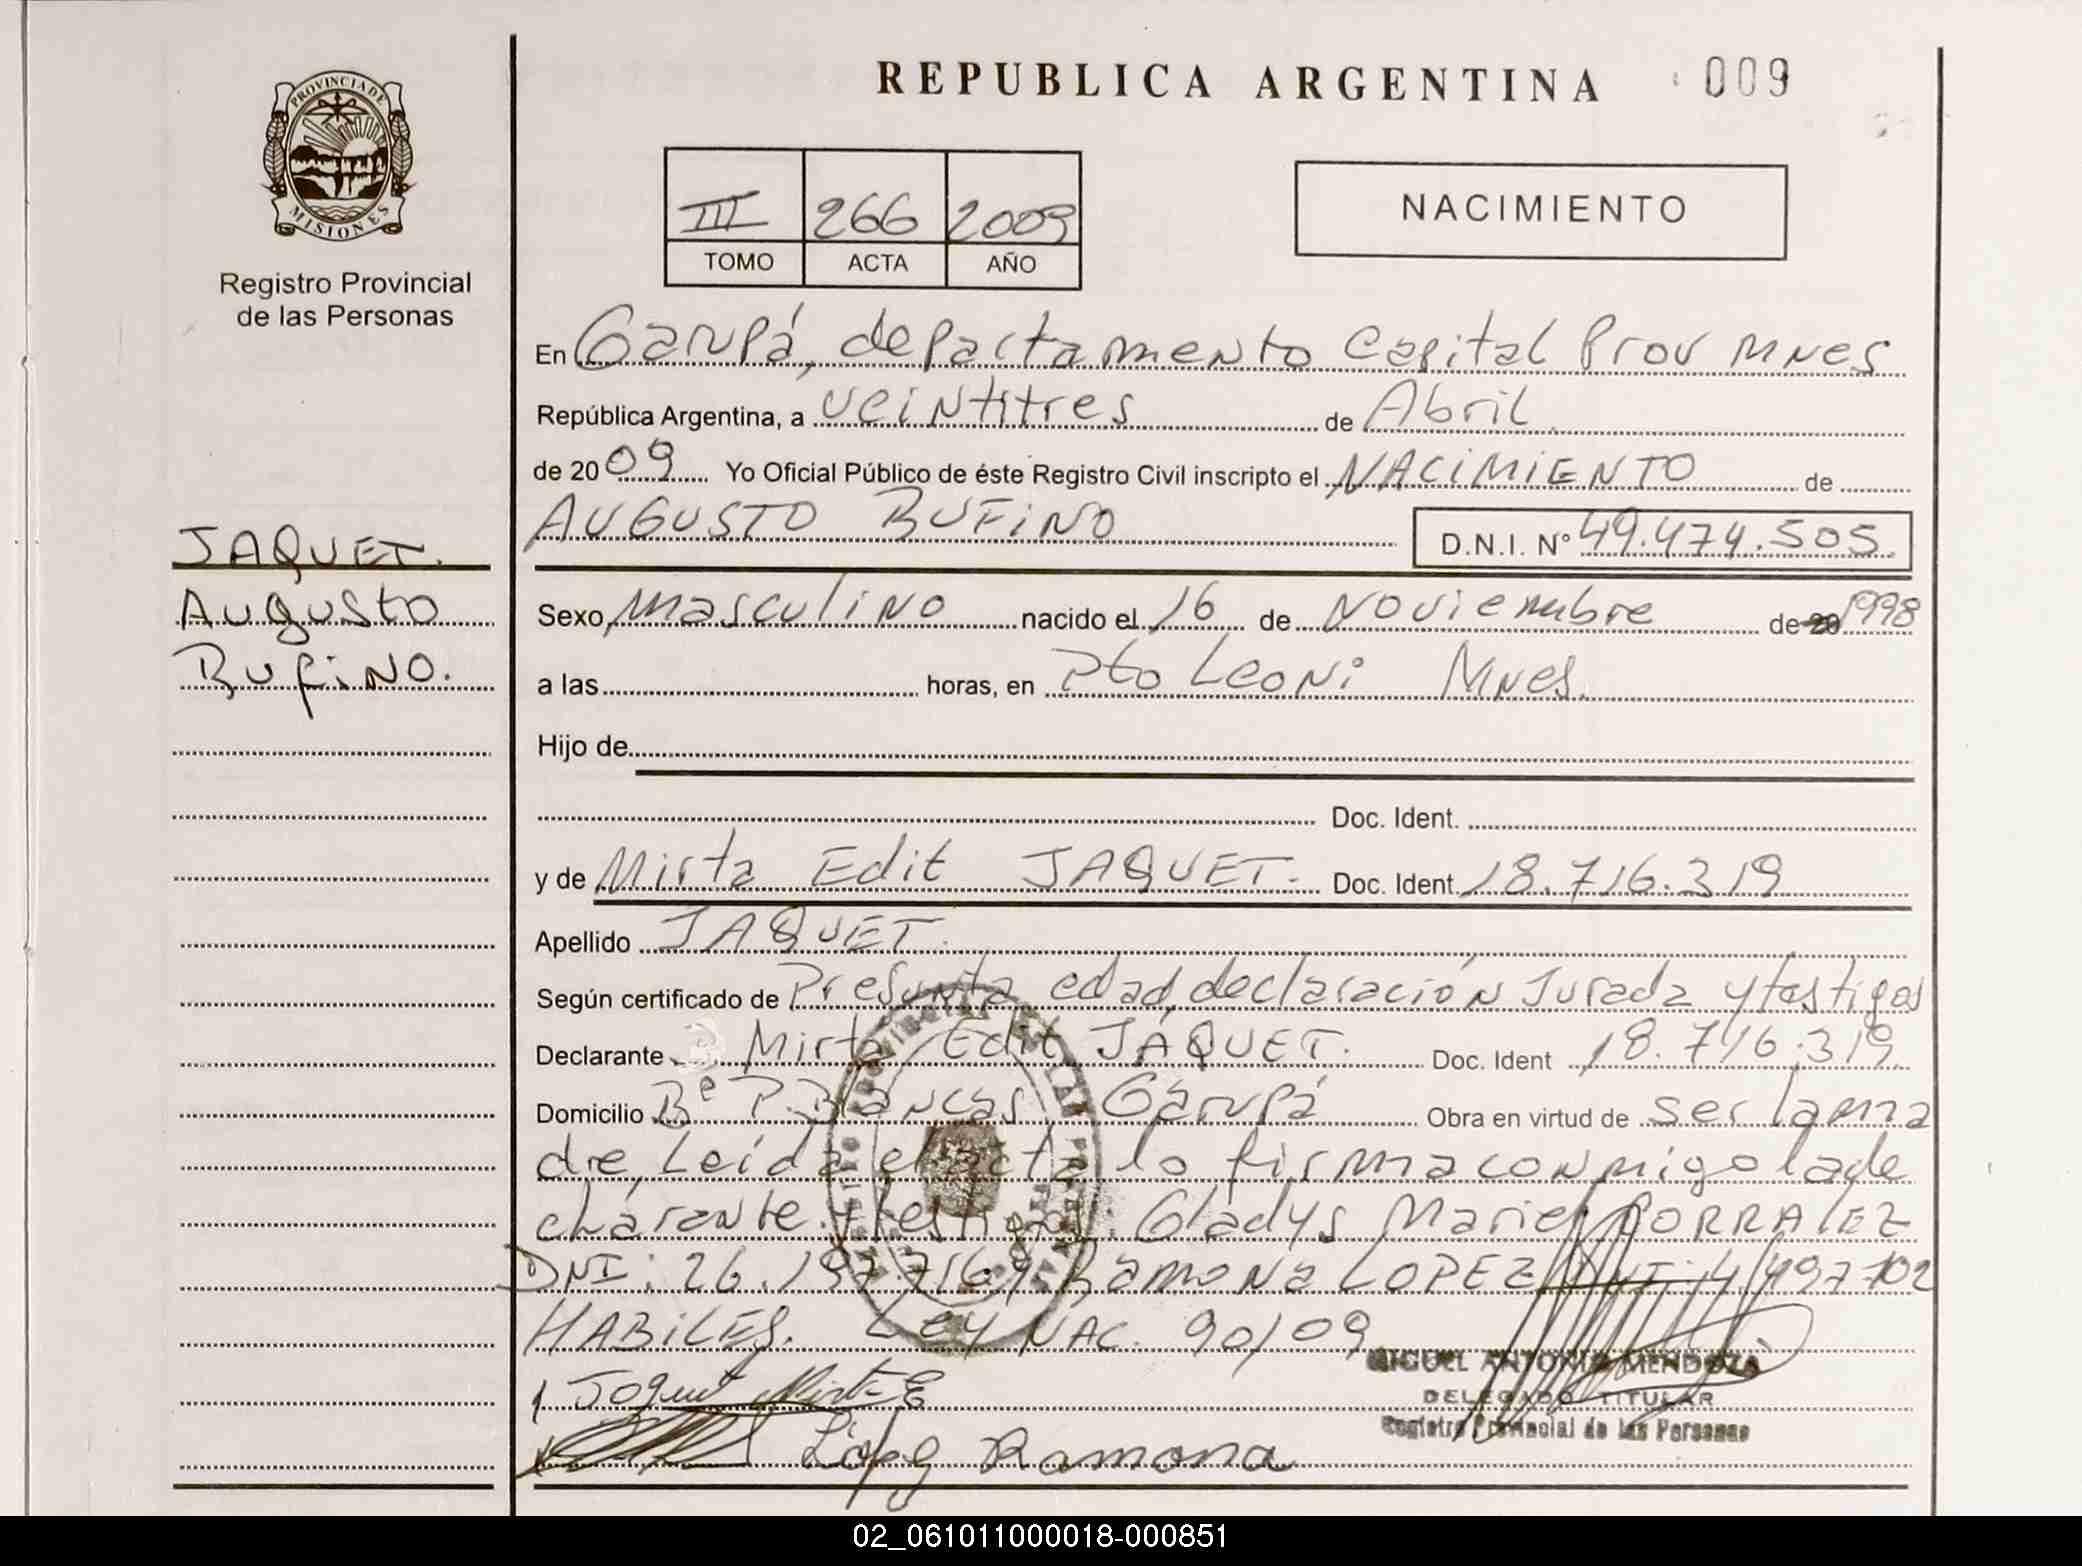 REPUBLICA ARGENTINA 009
PROVINCIA DE
MISIONES
Registro Provincial
de las Personas
III 266 2009
TOMO ACTA AÑO
NACIMIENTO
En Garupá, departamento Capital Prov Mnes
República Argentina, a veintitres de Abril
de 2009 Yo Oficial Público de éste Registro Civil inscripto el NACIMIENTO de
AUGUSTO RUFINO D.N.I. Nº 49.474.505
JAQUET.
Augusto
Rufino.
Sexo Masculino nacido el 16 de Noviembre de 20 1998
a las horas, en Pto Leoni Mnes.
Hijo de
Doc. Ident.
y de Mirta Edit JAQUET. Doc. Ident 18.716.319
Apellido JAQUET.
Según certificado de Presunta edad, declaración Jurada y testigos
Declarante Mirta Edit JAQUET. Doc. Ident 18.716.319
Domicilio Bº P. Blancas Garupá Obra en virtud de ser la ma
dre, Leída el acta lo firma conmigo la de
clarante y testigos: Gladys Mariel
DNI: 26.197.716 Ramona LOPEZ DNI:
HABILES. Ley NAC. 90/09
MIGUEL ANTONIO MENDOZA
DELEGADO TITULAR
Registro Provincial de las Personas
Jaquet Mirta E
López Ramona
02_061011000018-000851